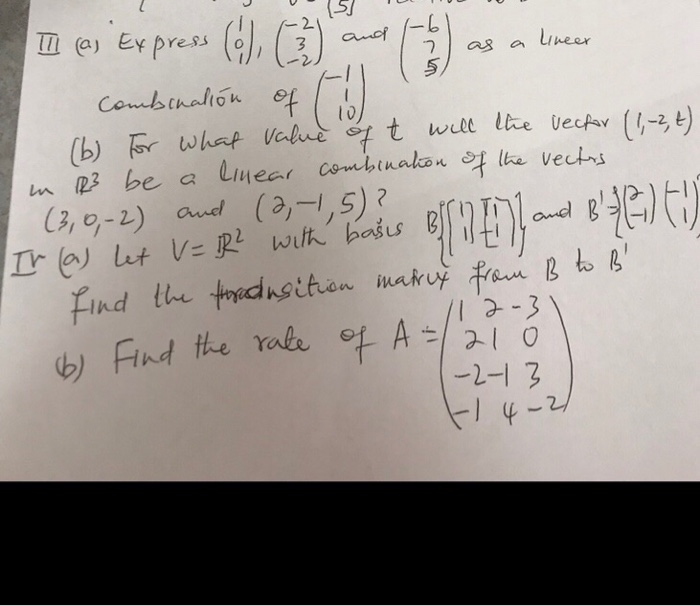 [5]
III (a) Express (1 0 1), (-2 3 -2) and (-6 7 5) as a lineer
Combination of (-1 1 10)
(b) For what value of t will the vector (1,-2,t)
in R3 be a linear combination of the vectrs
(3,0,-2) and (2,-1,5)?
IV (a) let V = R² with basis B and B' = {(2 -1) (-1 1)
find the transition matrix from B to B'
(b) Find the rate of A =
1 2 -3
2 1 0
-2 -1 3
-1 4 -2